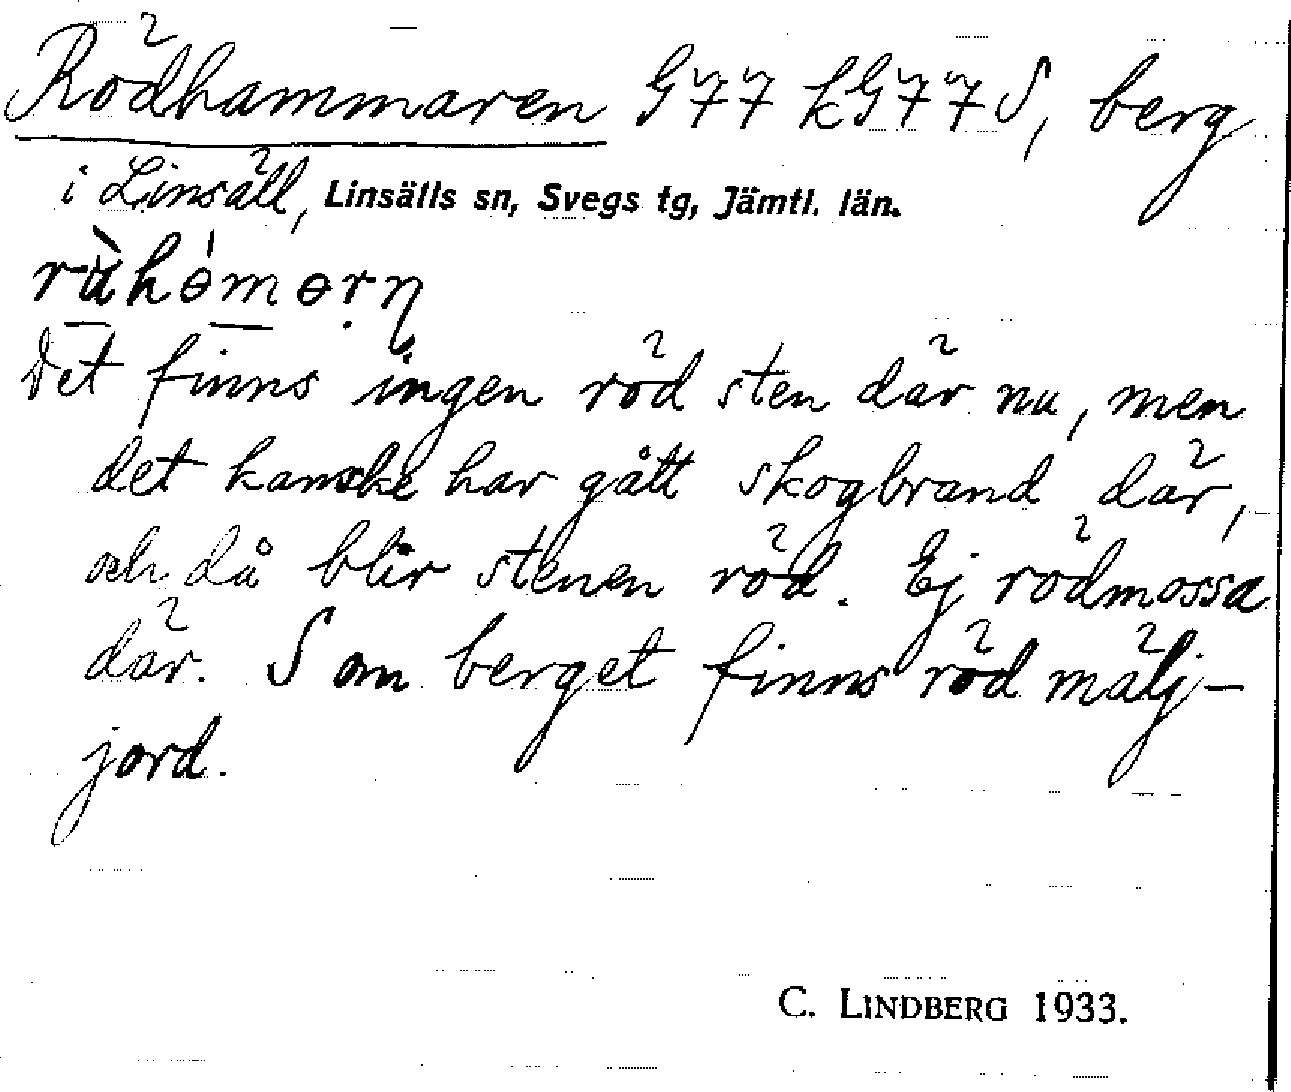 Rödhammaren G77 kG77S, berg
i Linsäll, Linsälls sn, Svegs tg, Jämtl. län.
Det finns ingen röd sten där nu, men
det kanske har gått skogbrand där,
och då blir stenen röd. Ej rödmossa
där. S om berget finns röd mälj-
jord.
C. LINDBERG 1933.